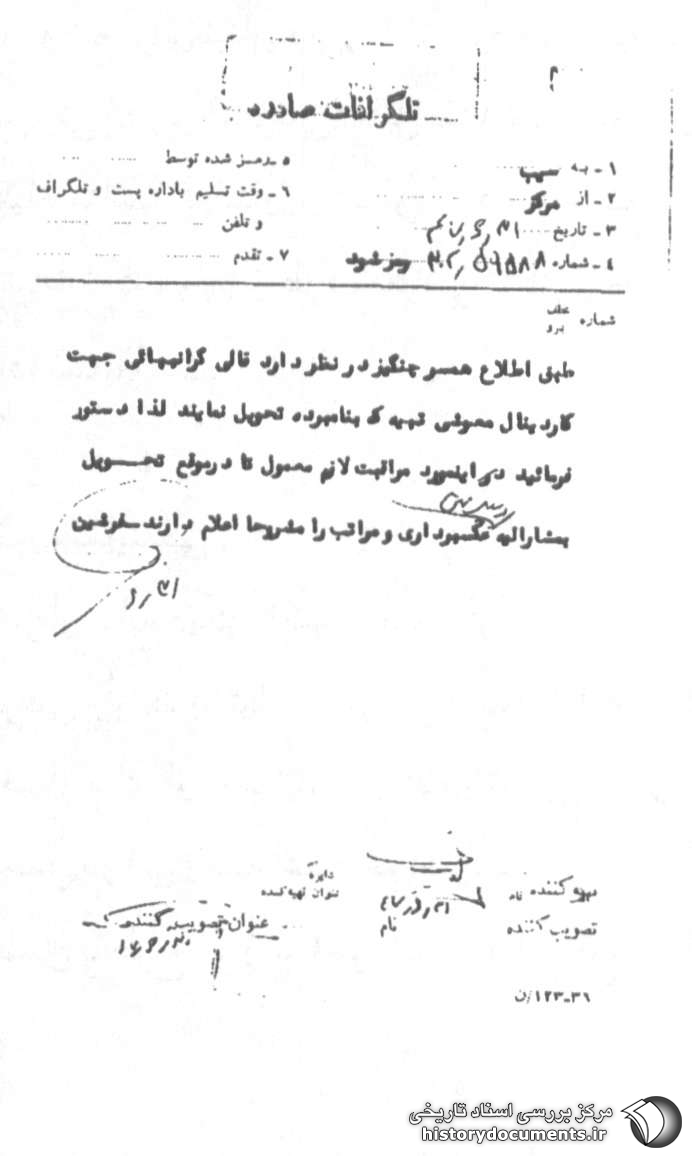 تلگرافات صادره
۱ - به سیب
۲ - از مرکز
۳ - تاریخ
۴ - شماره رمز شود
۵ - رمز شده توسط
۶ - وقت تسلیم باداره پست و تلگراف
و تلفن
۷ - تقدم
شماره عطف
پیرو
طبق اطلاع همسر چنگیز در نظر دارد قالی گرانبهائی جهت
کاردینال معوشی تهیه که بنامبرده تحویل نمایند لذا دستور
فرمائید در اینمورد مراقبت لازم معمول تا در موقع تحویل
بمشارالیه عکسبرداری و مراتب را مشروحا اعلام دارند
تهیه کننده نام
دایره
عنوان تهیه کننده
تصویب کننده نام
عنوان تصویب کننده
۳۶-۱۲۳/ن
مرکز بررسی اسناد تاریخی
historydocuments.ir